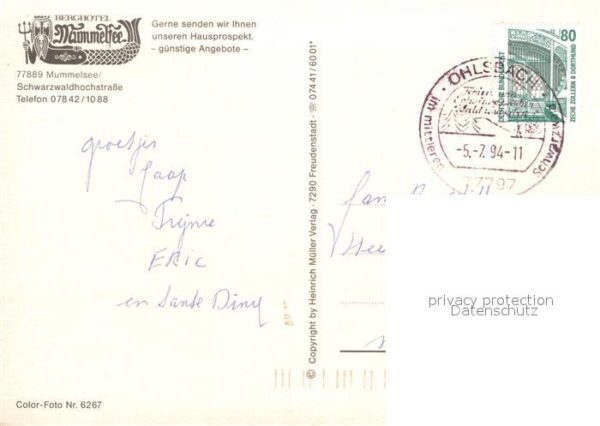 BERGHOTEL
Mummelsee
77889 Mummelsee/
Schwarzwaldhochstraße
Telefon 078 42 / 10 88
Gerne senden wir Ihnen
unseren Hausprospekt.
– günstige Angebote –
groetjes
Jaap
ERIC
en tante Diny
Color-Foto Nr. 6267
© Copyright by Heinrich Müller Verlag · 7290 Freudenstadt · ☏ 074 41 / 60 01*
80
DEUTSCHE BUNDESPOST
ZECHE ZOLLERN II DORTMUND
· OHLSBACH ·
im mittleren Schwarzw
-5.-7.94-11
77797
Fam
privacy protection
Datenschutz